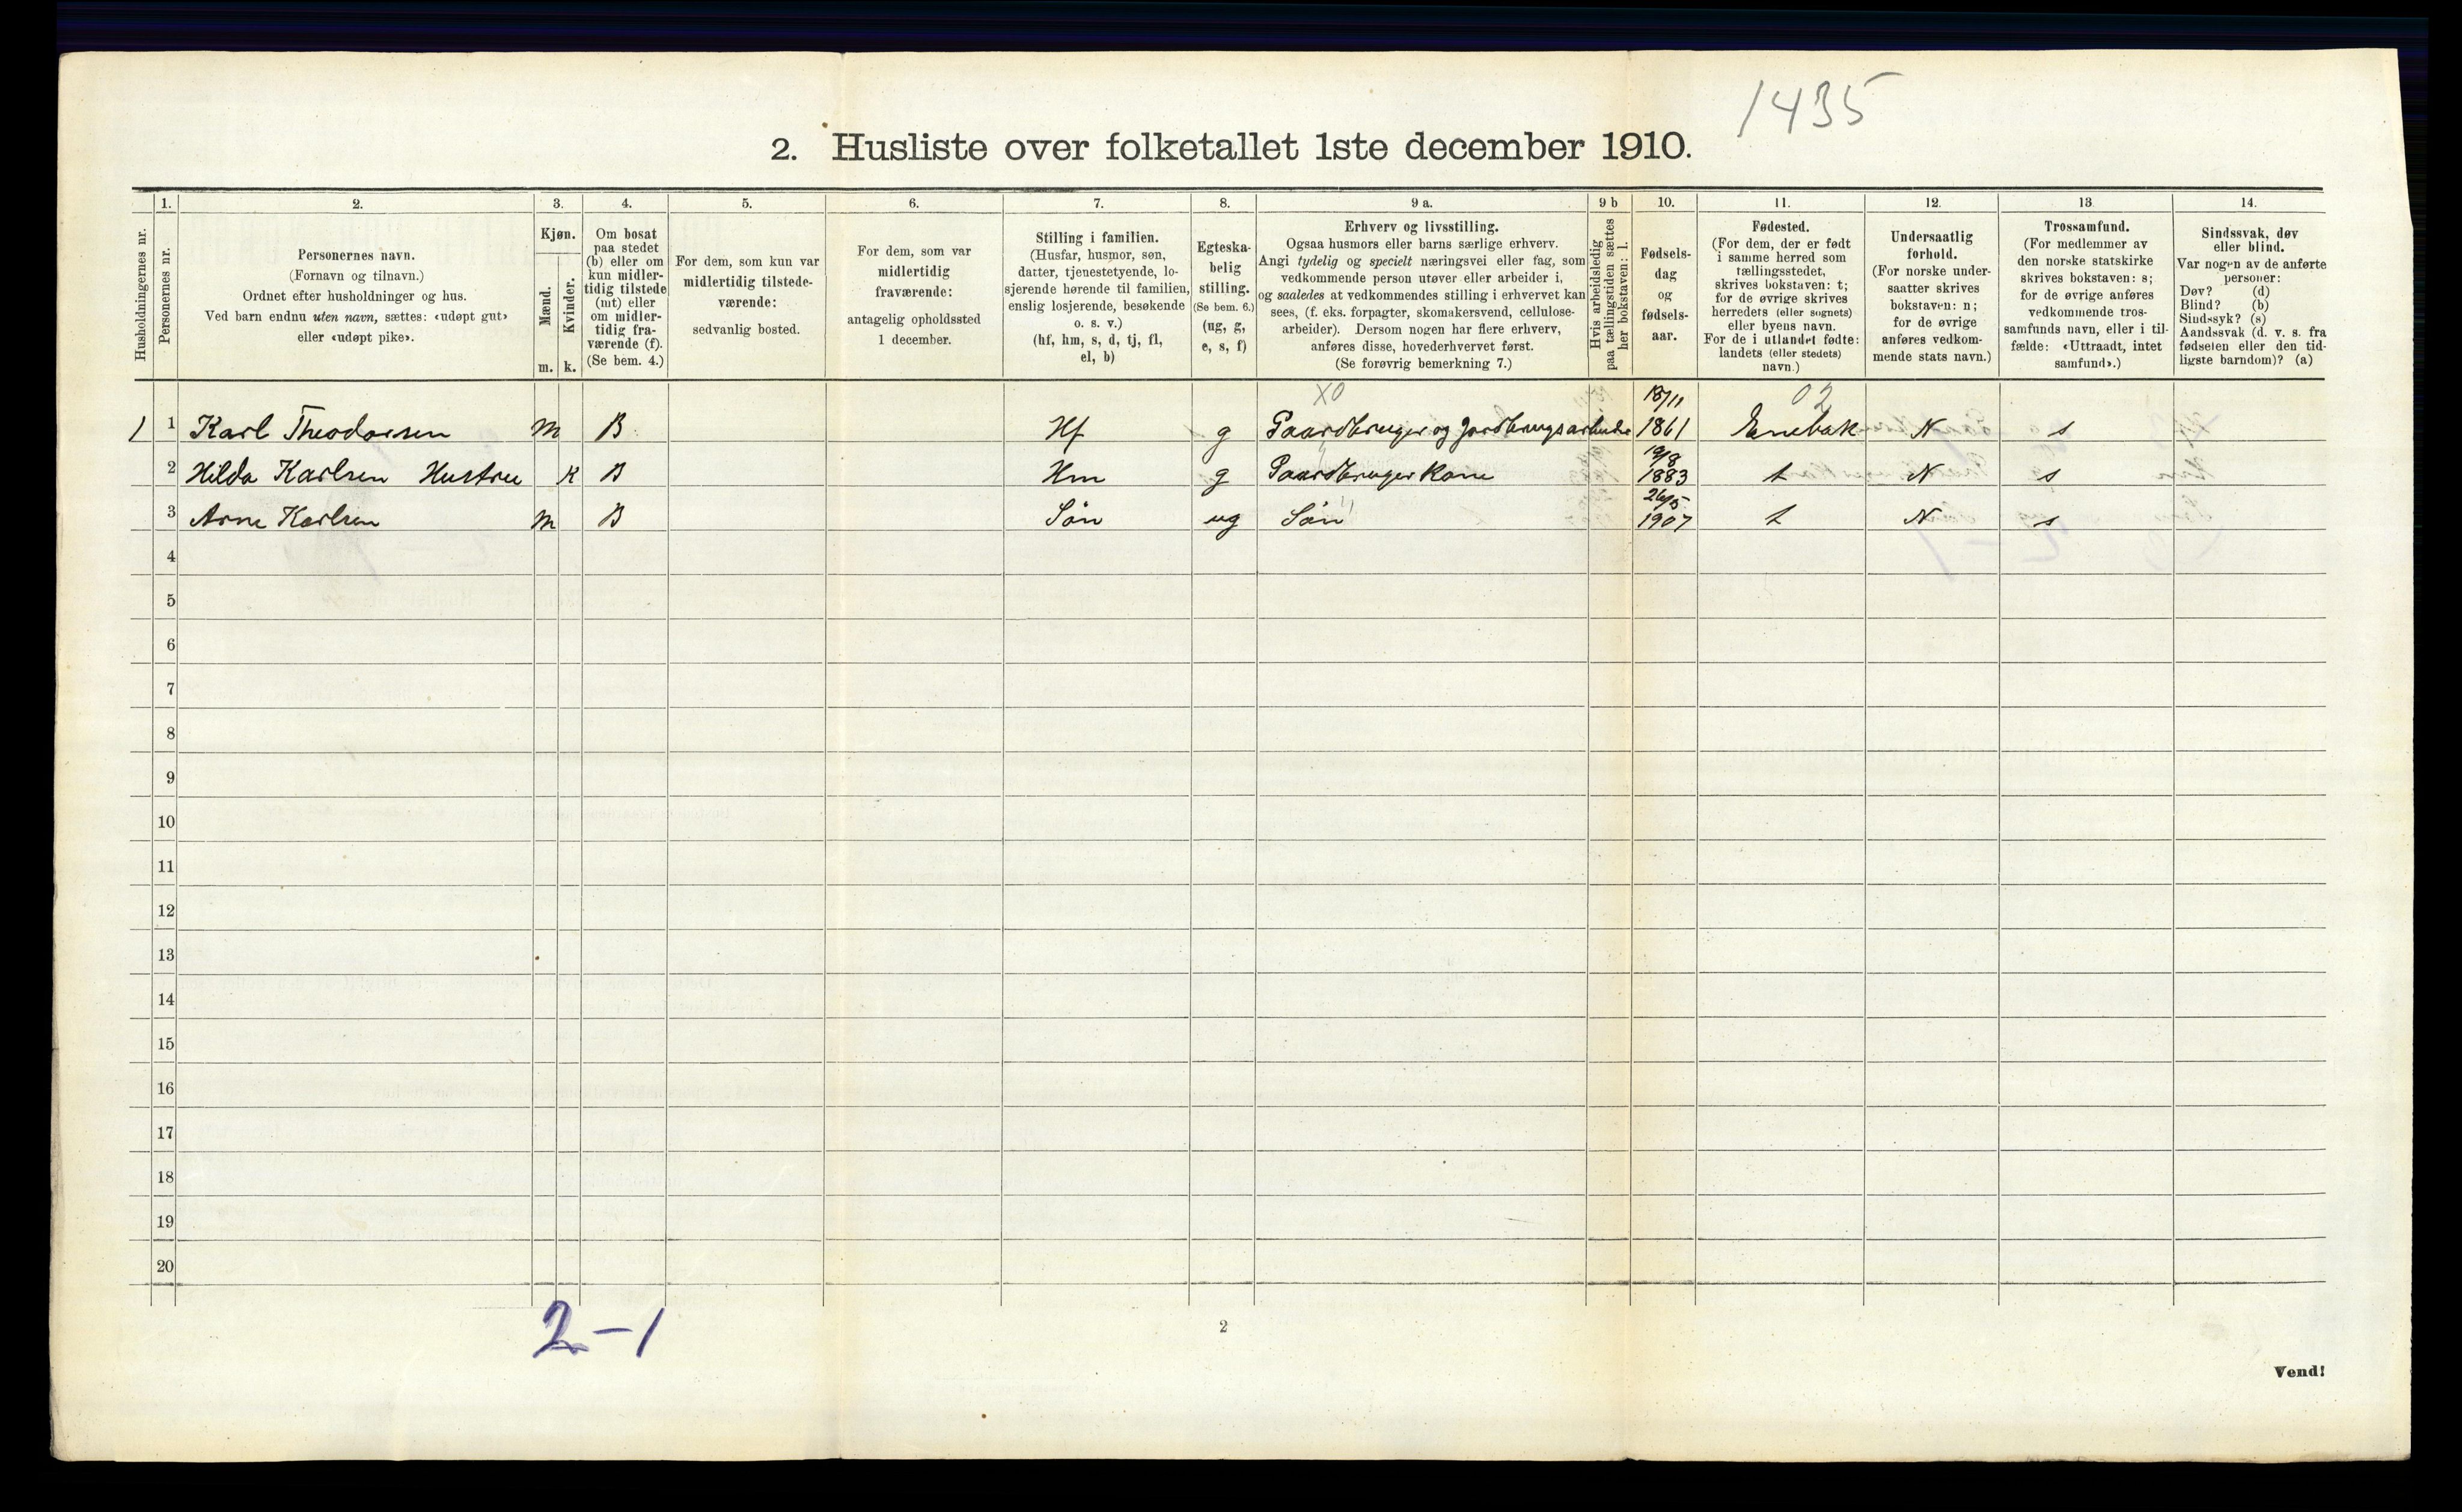 1435
2. Husliste over folketallet 1ste december 1910.
Husholdningernes nr.
1.
Personernes nr.
2.
Personernes navn.
(Fornavn og tilnavn.)
Ordnet efter husholdninger og hus.
Ved barn endnu uten navn, sættes: «udøpt gut»
eller «udøpt pike».
3.
Kjøn.
Mænd.
Kvinder.
m. k.
4.
Om bosat
paa stedet
(b) eller om
kun midler-
tidig tilstede
(mt) eller
om midler-
tidig fra-
værende (f).
(Se bem. 4.)
5.
For dem, som kun var
midlertidig tilstede-
værende:
sedvanlig bosted.
6.
For dem, som var
midlertidig
fraværende:
antagelig opholdssted
1 december.
7.
Stilling i familien.
(Husfar, husmor, søn,
datter, tjenestetyende, lo-
sjerende hørende til familien,
enslig losjerende, besøkende
o. s. v.)
(hf, hm, s, d, tj, fl,
el, b)
8.
Egteska-
belig
stilling.
(Se bem. 6.)
(ug, g,
e, s, f)
9 a.
Erhverv og livsstilling.
Ogsaa husmors eller barns særlige erhverv.
Angi tydelig og specielt næringsvei eller fag, som
vedkommende person utøver eller arbeider i,
og saaledes at vedkommendes stilling i erhvervet kan
sees, (f. eks. forpagter, skomakersvend, cellulose-
arbeider). Dersom nogen har flere erhverv,
anføres disse, hovederhvervet først.
(Se forøvrig bemerkning 7.)
9 b
Hvis arbeidsledig
paa tællingstiden sættes
her bokstaven: l.
10.
Fødsels-
dag
og
fødsels-
aar.
11.
Fødested.
(For dem, der er født
i samme herred som
tællingsstedet,
skrives bokstaven: t;
for de øvrige skrives
herredets (eller sognets)
eller byens navn.
For de i utlandet fødte:
landets (eller stedets)
navn.)
12.
Undersaatlig
forhold.
(For norske under-
saatter skrives
bokstaven: n;
for de øvrige
anføres vedkom-
mende stats navn.)
13
Trossamfund.
(For medlemmer av
den norske statskirke
skrives bokstaven: s;
for de øvrige anføres
vedkommende tros-
samfunds navn, eller i til-
fælde: «Uttraadt, intet
samfund».)
14.
Sindssvak, døv
eller blind.
Var nogen av de anførte
personer:
Døv? (d)
Blind? (b)
Sindssyk? (s)
Aandssvak (d. v. s. fra
fødselen eller den tid-
ligste barndom)? (a)
XO 18/11 02
1 1 Karl Theodorsen m B Hf g Gaardbruger og Jordbrugsarbeider 1861 Enebak N s
19/8
2 Hilda Karlsen Hustru K B Hm g Gaardbruger Kone 1883 t N s
26/5
3 Arne Karlsen m B Søn ug Søn 1907 t N s
4
5
6
7
8
9
10
11
12
13
14
15
16
17
18
19
20
2-1
2
Vend!